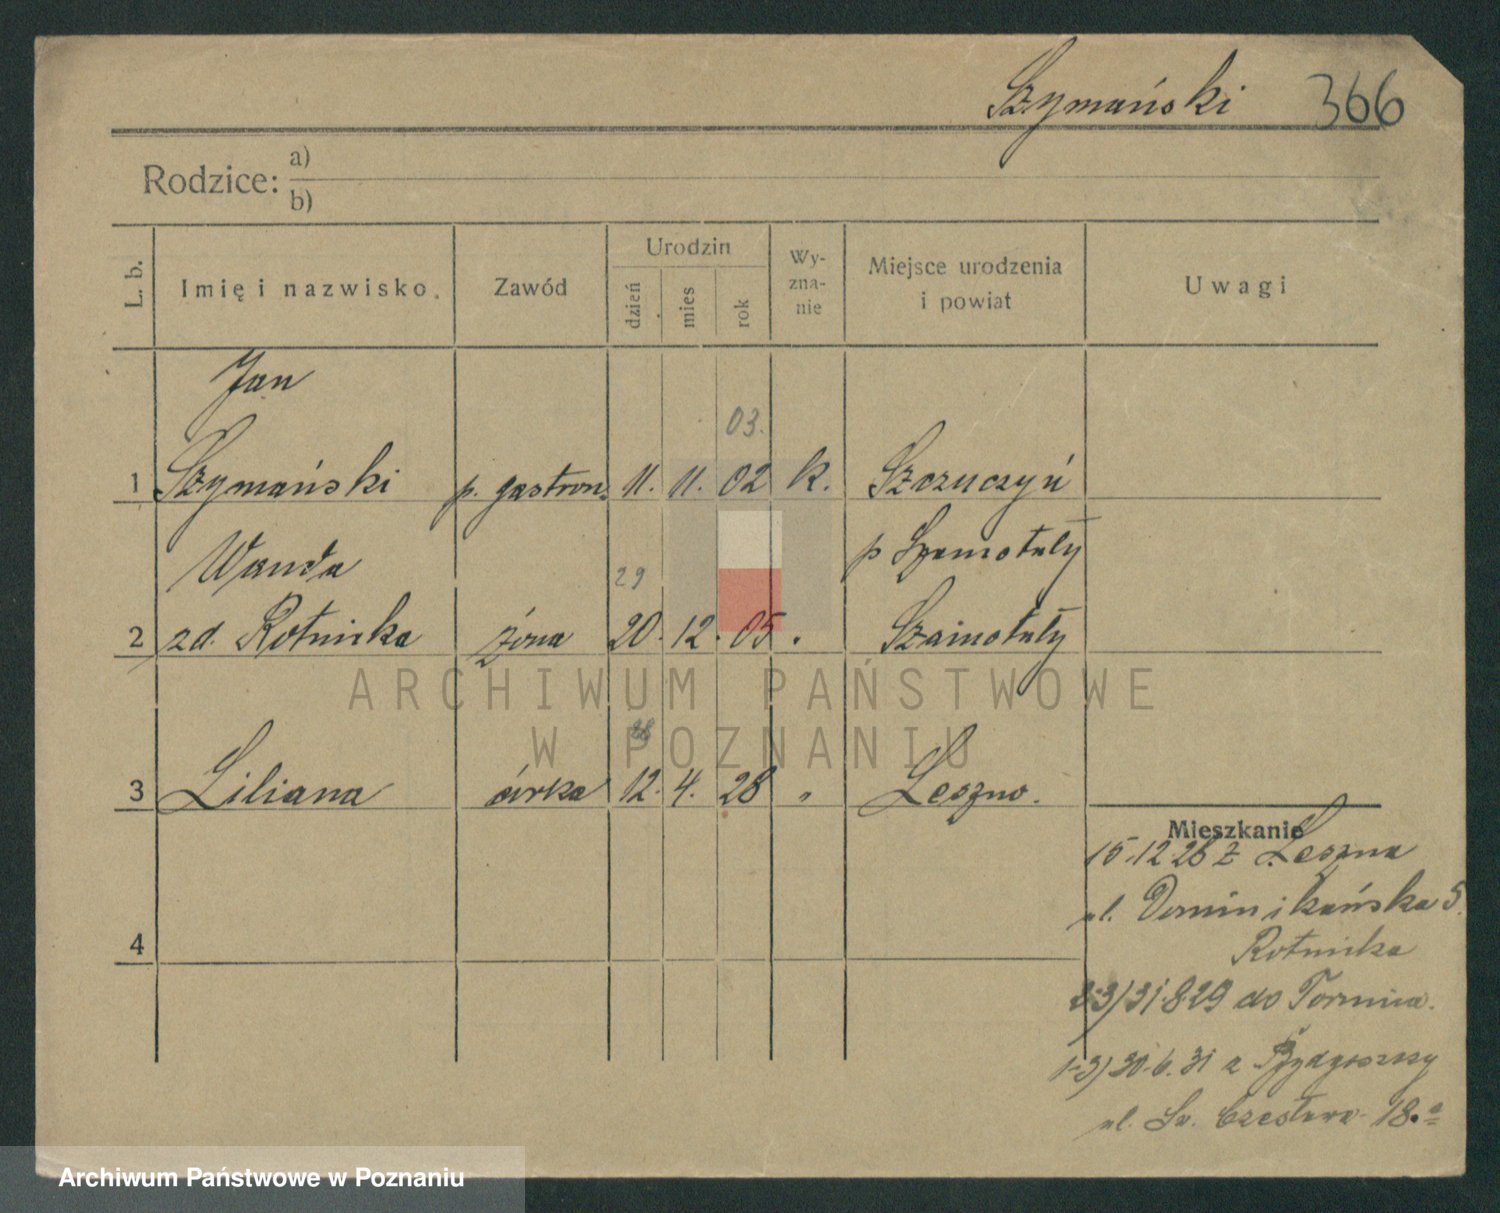 Szymański 366
Rodzice: a)
b)
L. b. Imię i nazwisko. Zawód Urodzin dzień mies rok Wy-zna-nie Miejsce urodzenia i powiat Uwagi
Jan
03.
1 Szymański p. gastron. 11. 11. 02 k. Szczuczyń
Wanda p Szamotuły
29
2 zd. Rotnicka żona 20. 12. 05 . Szamotuły
ARCHIWUM PAŃSTWOWE
W POZNANIU
3 Liliana córka 12. 4. 28 " Leszno.
Mieszkanie
15.12 26 z Leszna
ul. Dominikańska 5.
Rotnicka
4
2-3) 31.8 29 do Torunia.
1-3) 30.6.31 z Bydgoszczy
ul. Św. Czesława 18.
Archiwum Państwowe w Poznaniu